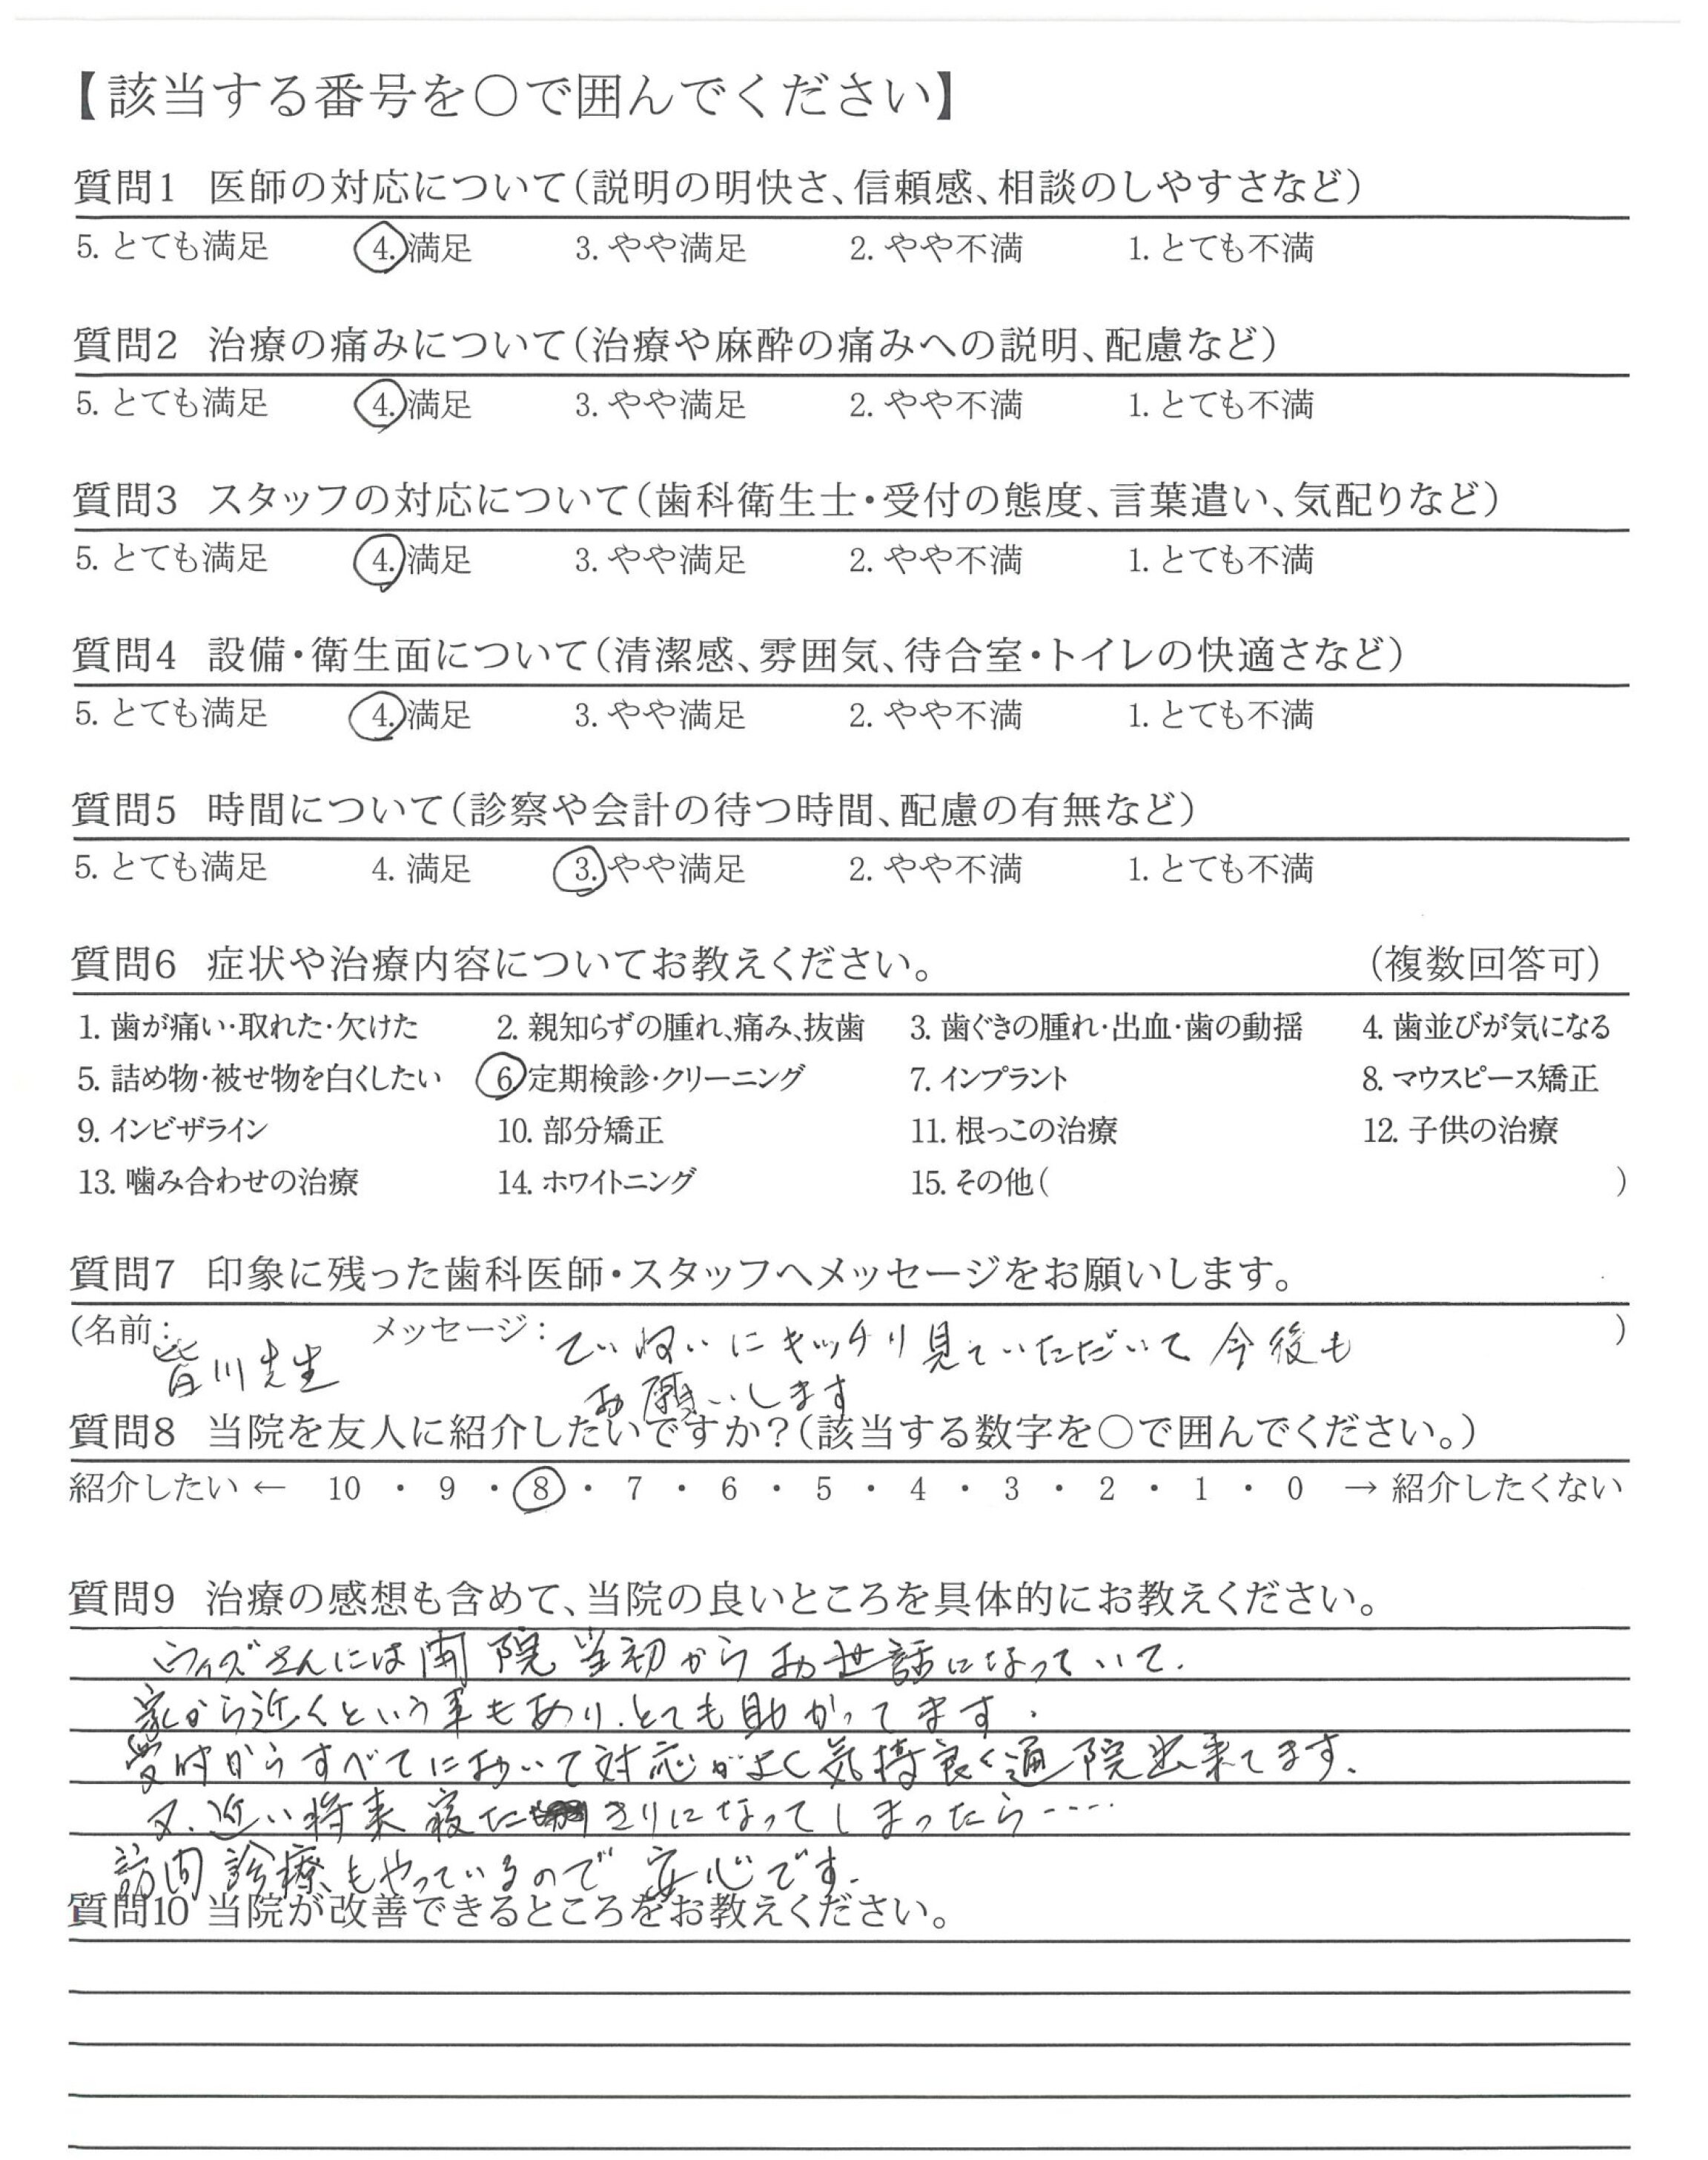 【該当する番号を〇で囲んでください】
質問1 医師の対応について(説明の明快さ、信頼感、相談のしやすさなど)
5. とても満足 4. 満足 3. やや満足 2. やや不満 1. とても不満
質問2 治療の痛みについて(治療や麻酔の痛みへの説明、配慮など)
5. とても満足 4. 満足 3. やや満足 2. やや不満 1. とても不満
質問3 スタッフの対応について(歯科衛生士・受付の態度、言葉遣い、気配りなど)
5. とても満足 4. 満足 3. やや満足 2. やや不満 1. とても不満
質問4 設備・衛生面について(清潔感、雰囲気、待合室・トイレの快適さなど)
5. とても満足 4. 満足 3. やや満足 2. やや不満 1. とても不満
質問5 時間について(診察や会計の待つ時間、配慮の有無など)
5. とても満足 4. 満足 3. やや満足 2. やや不満 1. とても不満
質問6 症状や治療内容についてお教えください。 (複数回答可)
1. 歯が痛い・取れた・欠けた 2. 親知らずの腫れ、痛み、抜歯 3. 歯ぐきの腫れ・出血・歯の動揺 4. 歯並びが気になる
5. 詰め物・被せ物を白くしたい 6 定期検診・クリーニング 7. インプラント 8. マウスピース矯正
9. インビザライン 10. 部分矯正 11. 根っこの治療 12. 子供の治療
13. 噛み合わせの治療 14. ホワイトニング 15. その他( )
質問7 印象に残った歯科医師・スタッフへメッセージをお願いします。
(名前: 皆川先生 メッセージ: ていねいにキッチリ見ていただいて 今後も )
お願いします
質問8 当院を友人に紹介したいですか?(該当する数字を〇で囲んでください。)
紹介したい ← 10 ・ 9 ・ 8 ・ 7 ・ 6 ・ 5 ・ 4 ・ 3 ・ 2 ・ 1 ・ 0 → 紹介したくない
質問9 治療の感想も含めて、当院の良いところを具体的にお教えください。
ウィズさんには開院当初からお世話になっていて、
家から近くという事もあり、とても助かってます.
受付からすべてにおいて対応がよく気持良く通院出来てます.
又、近い将来寝たきりになってしまったら‥‥
訪問診療もやっているので安心です.
質問10 当院が改善できるところをお教えください。